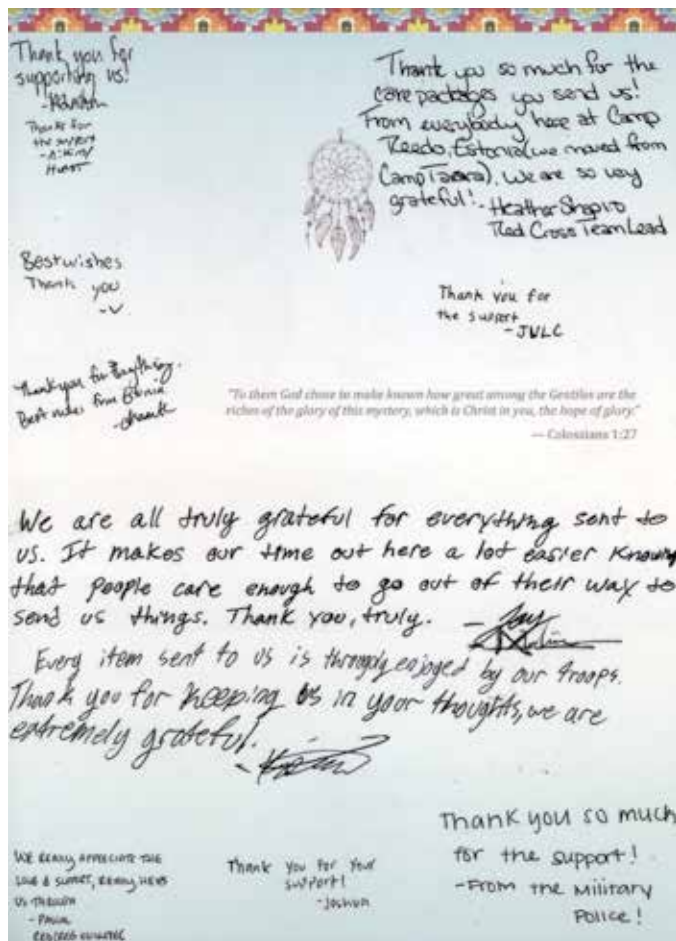 Thank you for
supporting us!
Thanks for
the support
Thank you so much for the
care packages you send us!
From everybody here at Camp
Reedo, Estonia (we moved from
Camp Taara). We are so very
grateful! - Heather Shapiro
Red Cross Team Lead
Best wishes
Thank you
Thank you for
the support
- JVLC
Thank you for Everything.
Best wishes from Estonia
"To them God chose to make known how great among the Gentiles are the
riches of the glory of this mystery, which is Christ in you, the hope of glory."
— Colossians 1:27
We are all truly grateful for everything sent to
us. It makes our time out here a lot easier knowing
that people care enough to go out of their way to
send us things. Thank you, truly.
Every item sent to us is throughly enjoyed by our troops.
Thank you for keeping us in your thoughts, we are
extremely grateful.
WE REALLY APPRECIATE THE
LOVE & SUPPORT, REALLY HELPS
US THROUGH
Thank you for your
support!
- Joshua
Thank you so much
for the support!
- From the Military
Police!